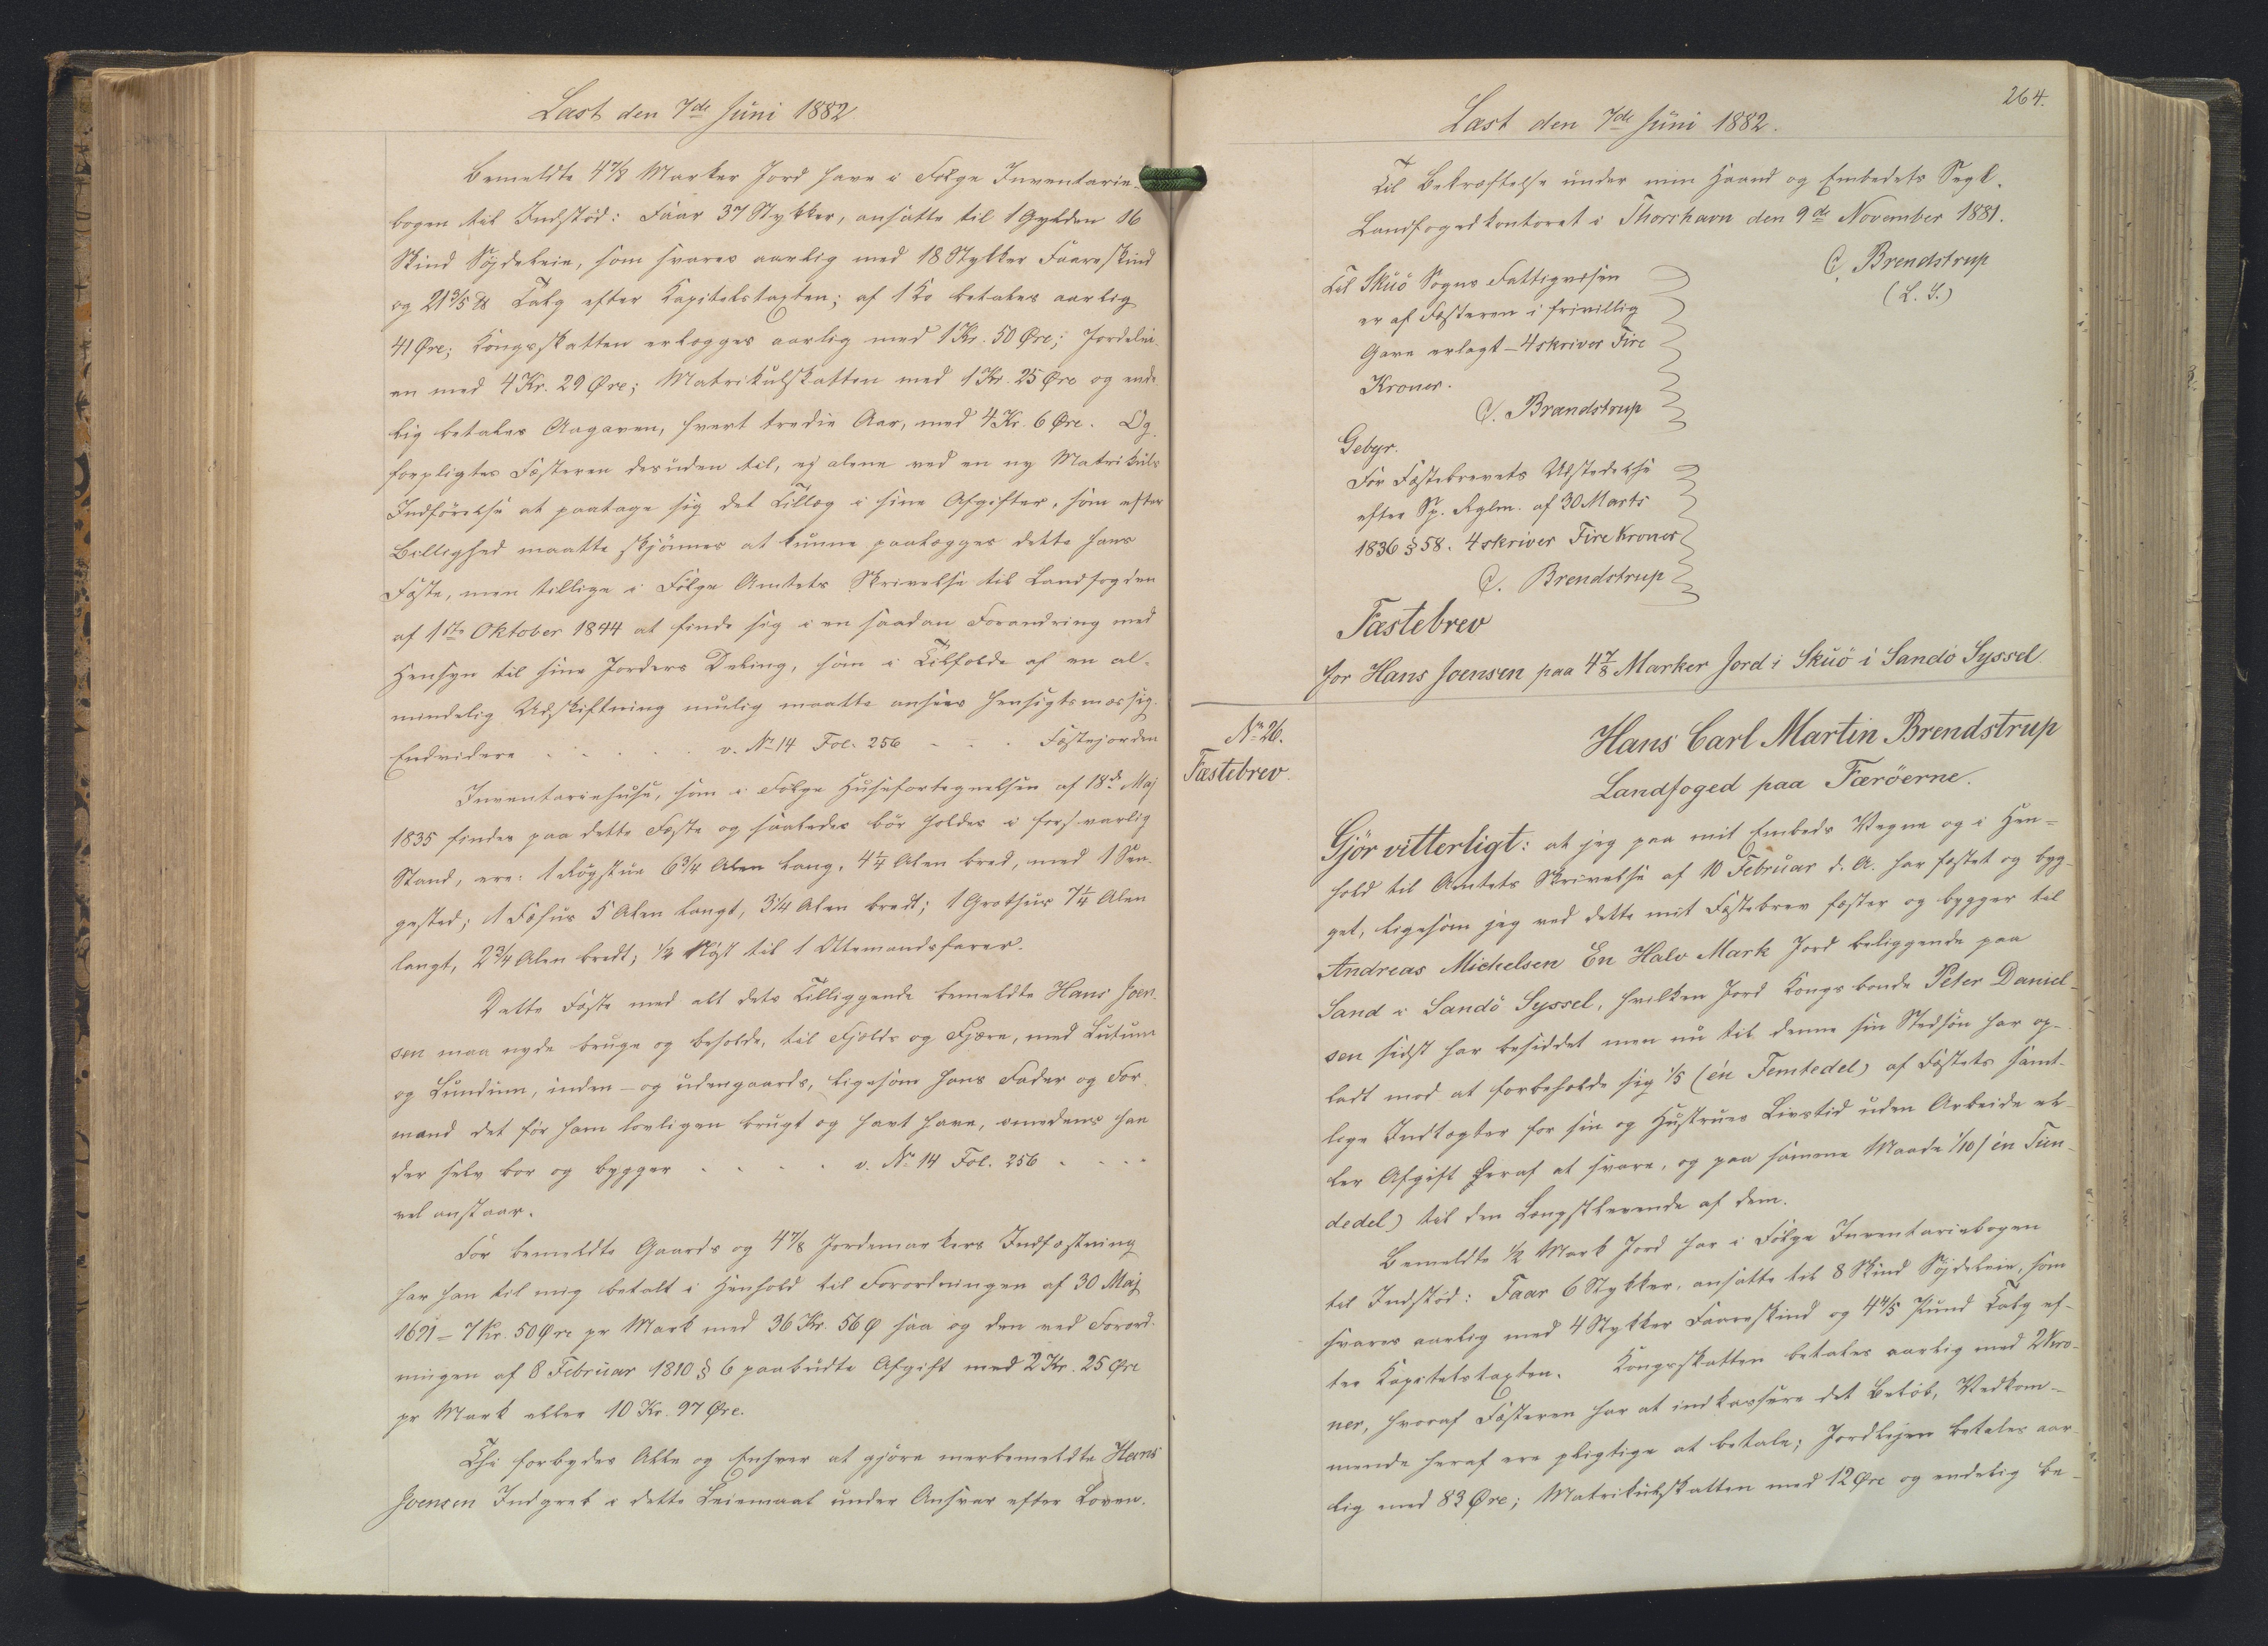 Læst den 7de Juni 1882
Bemeldte 4 7/8 Marker Jord have i Følge Inventarie-
bogen til Indstød: Faar 37 Stykker, ansatte til 1 Gylden 16
Skind Søjdeleie, som svares aarlig med 18 Stykker Faareskind
og 21 3/5 ℔ Talg efter Kapitelstaxten; af 1 Ko betales aarlig
41 Øre; Kongsskatten erlægges aarlig med 1 Kr. 50 Øre; Jordelei-
en med 4 Kr. 29 Øre; Matrikulskatten med 1 Kr. 25 Øre og ende-
lig betales Aagaven, hvert tredie Aar, med 4 Kr. 6 Øre. Og
forpligtes Fæsteren desuden til, ej alene ved en ny Matrikuls
Indförelse at paatage sig det Tillæg i sine Afgifter, som efter
Billighed maatte skjönnes at kunne paalægges dette hans
Fæste, men tillige i Fölge Amtets Skrivelse til Landfogden
af 1ste Oktober 1844 at finde sig i en saadan Forandring med
Hensyn til sine Jorders Deling, som i Tilfælde af en al-
mindelig Udskiftning mulig maatte ansees hensigtsmæssig.
Endvidere - - - - - - v. No 14 Fol. 256 - - - Fæstejorden
Inventariehuse, som i Følge Husefortegnelsen af 18de Maj
1835 findes paa dette Fæste og saaledes bör holdes i forsvarlig
Stand, ere: 1 Rögstue 6 3/4 Alen lang, 4 1/4 Alen bred, med 1 Sen-
gested; 1 Fæhus 5 Alen langt, 3 1/4 Alen bredt; 1 Grothus 7 1/4 Alen
langt, 2 3/4 Alen bredt; 1/2 Nöst til 1 Ottemandsfarer.
Dette Fæste med alt dets Tilliggende bemeldte Hans Joen-
sen maa nyde bruge og beholde, til Fjelds og Fjære, med Lutum
og Lundum, inden- og udengaards, ligesom hans Fader og For-
mand det för ham lovligen brugt og havt have, emedens han
der selv bor og bygger - - - - - v. No 14 Fol. 256 - - - -
vel anstaar.
För bemeldte Gaards og 4 7/8 Jordemarkers Indfæstning
har han til mig betalt i Henhold til Forordningen af 30 Maj
1691 = 7 Kr. 50 Øre pr Mark med 36 Kr. 56 Ø saa og den ved Forord-
ningen af 8 Februar 1810 § 6 paabudte Afgift med 2 Kr. 25 Øre
pr Mark eller 10 Kr. 97 Øre.
Thi forbydes Alle og Enhver at gjöre merbemeldte Hans
Joensen Indgreb i dette Leiemaal under Ansvar efter Loven.
264.
Læst den 7de Juni 1882.
Til Bekræftelse under min Haand og Embedets Segl.
Landfogedkontoret i Thorshavn den 9de November 1881.
C. Brendstrup
(L. S.)
Til Skuö Sogns Fattigvæsen
er af Fæsteren i frivillig
Gave erlagt – 4 skriver Fire
Kroner.
C. Brendstrup
Gebyr.
For Fæstebrevets Udstedelse
efter Sp. Rglm. af 30 Marts
1836 § 58. 4 skriver Fire Kroner
C. Brendstrup
Fæstebrev
for Hans Joensen paa 4 7/8 Marker Jord i Skuö i Sandö Syssel.
No 26.
Fæstebrev.
Hans Carl Martin Brendstrup
Landfoged paa Færöerne.
Gjör vitterligt: at jeg paa mit Embeds Vegne og i Hen-
hold til Amtets Skrivelse af 10 Februar d. A. har fæstet og byg-
get, ligesom jeg ved dette mit Fæstebrev fæster og bygger til
Andreas Michelsen En Halv Mark Jord beliggende paa
Sand i Sandö Syssel, hvilken Jord Kongsbonde Peter Daniel-
sen sidst har besiddet men nu til denne sin Stedsön har op-
ladt mod at forbeholde sig 1/5 (én Femtedel) af Fæstets sămt-
lige Indtægter for sin og Hustrues Livstid uden Arbeide el-
ler Afgift heraf at svare, og paa samme Maade 1/10 (én Tien-
dedel) til den Længstlevende af dem.
Bemeldte 1/2 Mark Jord har i Fölge Inventariebogen
til Indstöd: Faar 6 Stykker, ansatte til 8 Skind Söjdeleie, som
svares aarlig med 4 Stykker Faareskind og 4 4/5 Pund Talg ef-
ter Kapitelstaxten. Kongsskatten betales aarlig med 2 Kro-
ner, hvoraf Fæsteren har at indkassere det Belöb, Vedkom-
mende heraf ere pligtige at betale; Jordlejen betales aar-
lig med 83 Øre; Matrikulskatten med 12 Øre og endelig be-